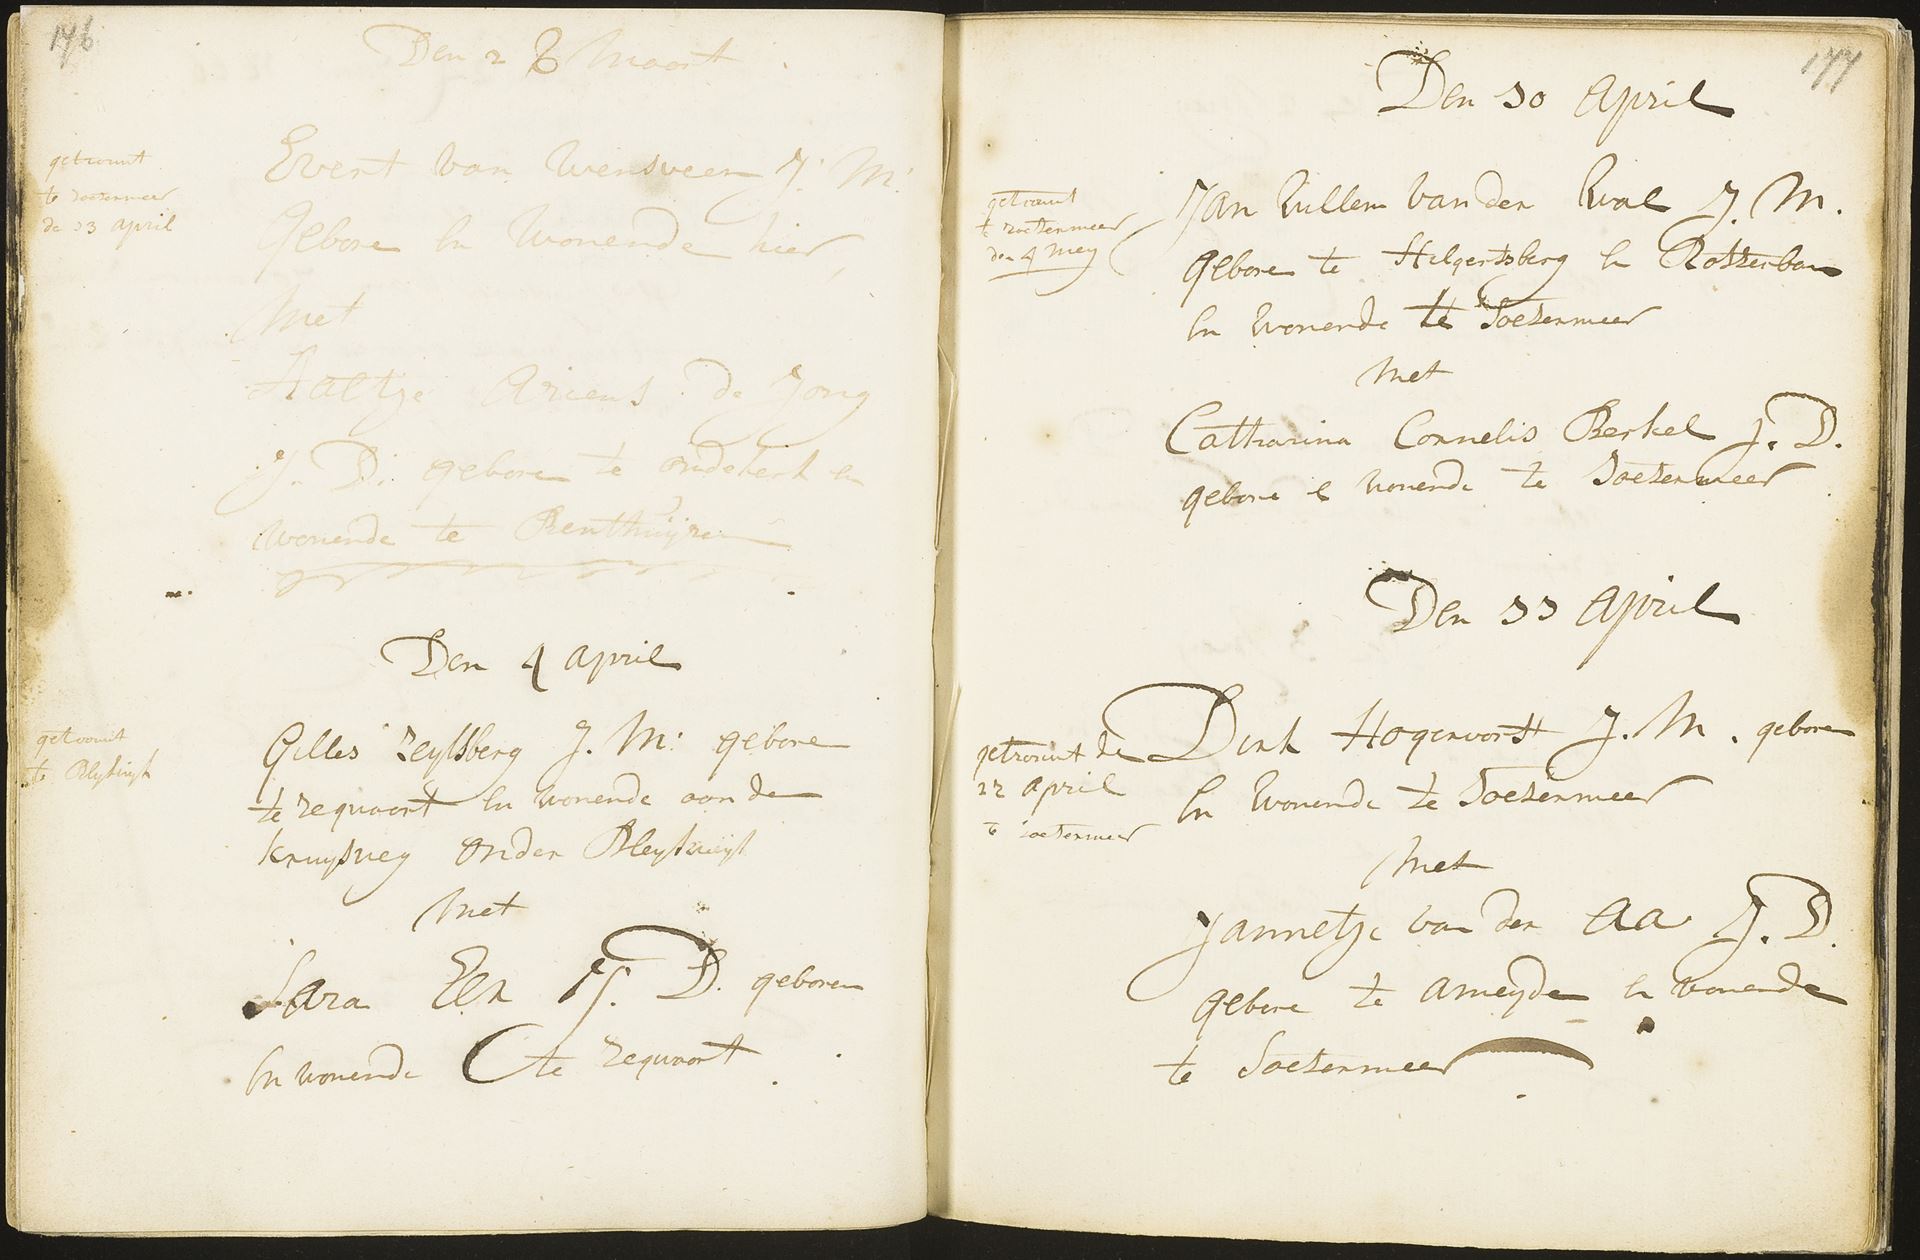 176
Den 28 Maart
getrount
te soetermeer
de 13 april
Evert van Wensveen J: M:
Gebore En Wonende hier,
Met
Aaltje Ariens de Jong
J. D: gebore te oudekerk en
wonende te Benthuijsen
Den 4 april
getrount
te Bleyswyk
Gilles Zeylsberg J. M: gebore
te zegwaort En wonende aan de
Kruysweg onder Bleyswyk
Met
Sara Een J. D. geboren
En wonende te zegwaort
177
Den 10 April
getrount
te zoetermeer
den 4 Mey
Jan Willem van der Wal J. M.
gebore te Hilgertsberg En Rotterban
En wonende te Soetermeer
Met
Catharina Cornelis Berkel J. D.
gebore e wonende te Soetermeer
Den 11 April
getrount de
22 april
te zoetermeer
Dirk Hogervorst J. M. gebore
En Wonende te Soetermeer
Met
Jannetje van der Aa J. D.
gebore te Ameyde En wonende
te Soetermeer